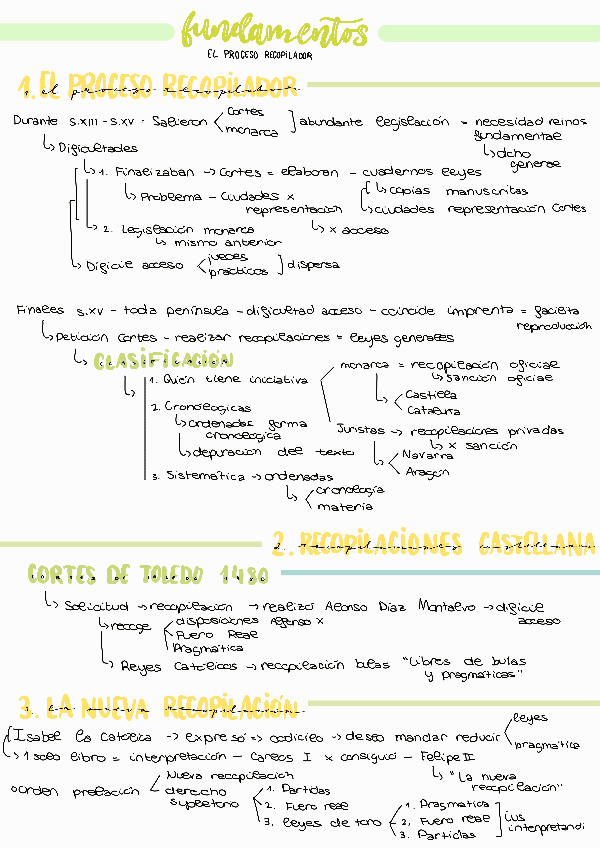 fundamentos
EL PROCESO RECOPILADOR
1. EL PROCESO RECOPILADOR
Durante s.XIII - s.XV - Salieron < Cortes
monarca ] abundante legislación = necesidad reinos
fundamentar
↳ dcho general
↳ Dificultades
↳ 1. Finalizaban → Cortes = elaboran - cuadernos leyes
↳ Problema - Ciudades x representación
↳ copias manuscritas
↳ ciudades representación Cortes
↳ x acceso
↳ 2. Legislación monarca
↳ mismo anterior
↳ Dificil acceso < jueces
prácticos ] dispersa
Finales s.XV - toda península - dificultad acceso - coincide imprenta = facilita
reproducción
↳ Petición Cortes - realizar recopilaciones = leyes generales
↳ CLASIFICACIÓN
↳ 1. Quién tiene iniciativa
monarca = recopilación oficial
↳ sanción oficial
↳ < Castilla
Cataluña
Juristas → recopilaciones privadas
↳ x sanción
↳ < Navarra
Aragón
2. Cronológicas
↳ ordenadas forma
cronológica
↳ depuración del texto
3. Sistemática → ordenadas
↳ < cronología
materia
2. RECOPILACIONES CASTELLANA
CORTES DE TOLEDO 1480
↳ Solicitud → recopilación → realizó Alonso Díaz Montalvo → dificil
acceso
↳ recoge < disposiciones Alfonso X
Fuero Real
Pragmática
↳ Reyes Católicos → recopilación bulas "Libres de bulas
y pragmáticas"
3. LA NUEVA RECOPILACIÓN
Isabel la Católica → expresó → codicilo → deseo mandar reducir < leyes
pragmática
↳ 1 solo libro = interpretación - Carlos I x consiguió - Felipe II
↳ "La nueva
recopilación"
○ Orden prelación < Nueva recopilación
derecho
supletorio < 1. Partidas
2. Fuero real
3. leyes de toro < 1. Pragmática
2. Fuero real
3. Partidas ] ius
interpretandi